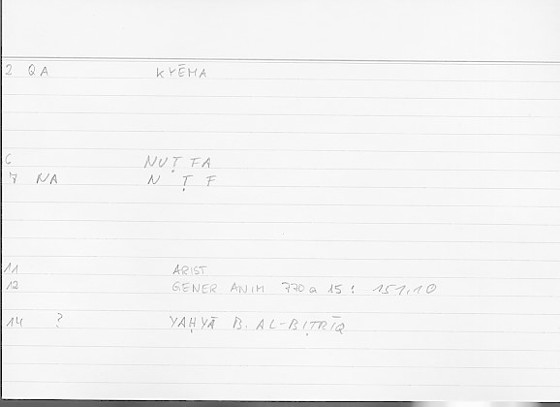 2 QA KYĒMA
6 NUṬFA
7 NA N Ṭ F
11 ARIST
12 GENER ANIM 770 a 15 : 151,10
14 ? YAḤYĀ B. AL-BIṬRĪQ